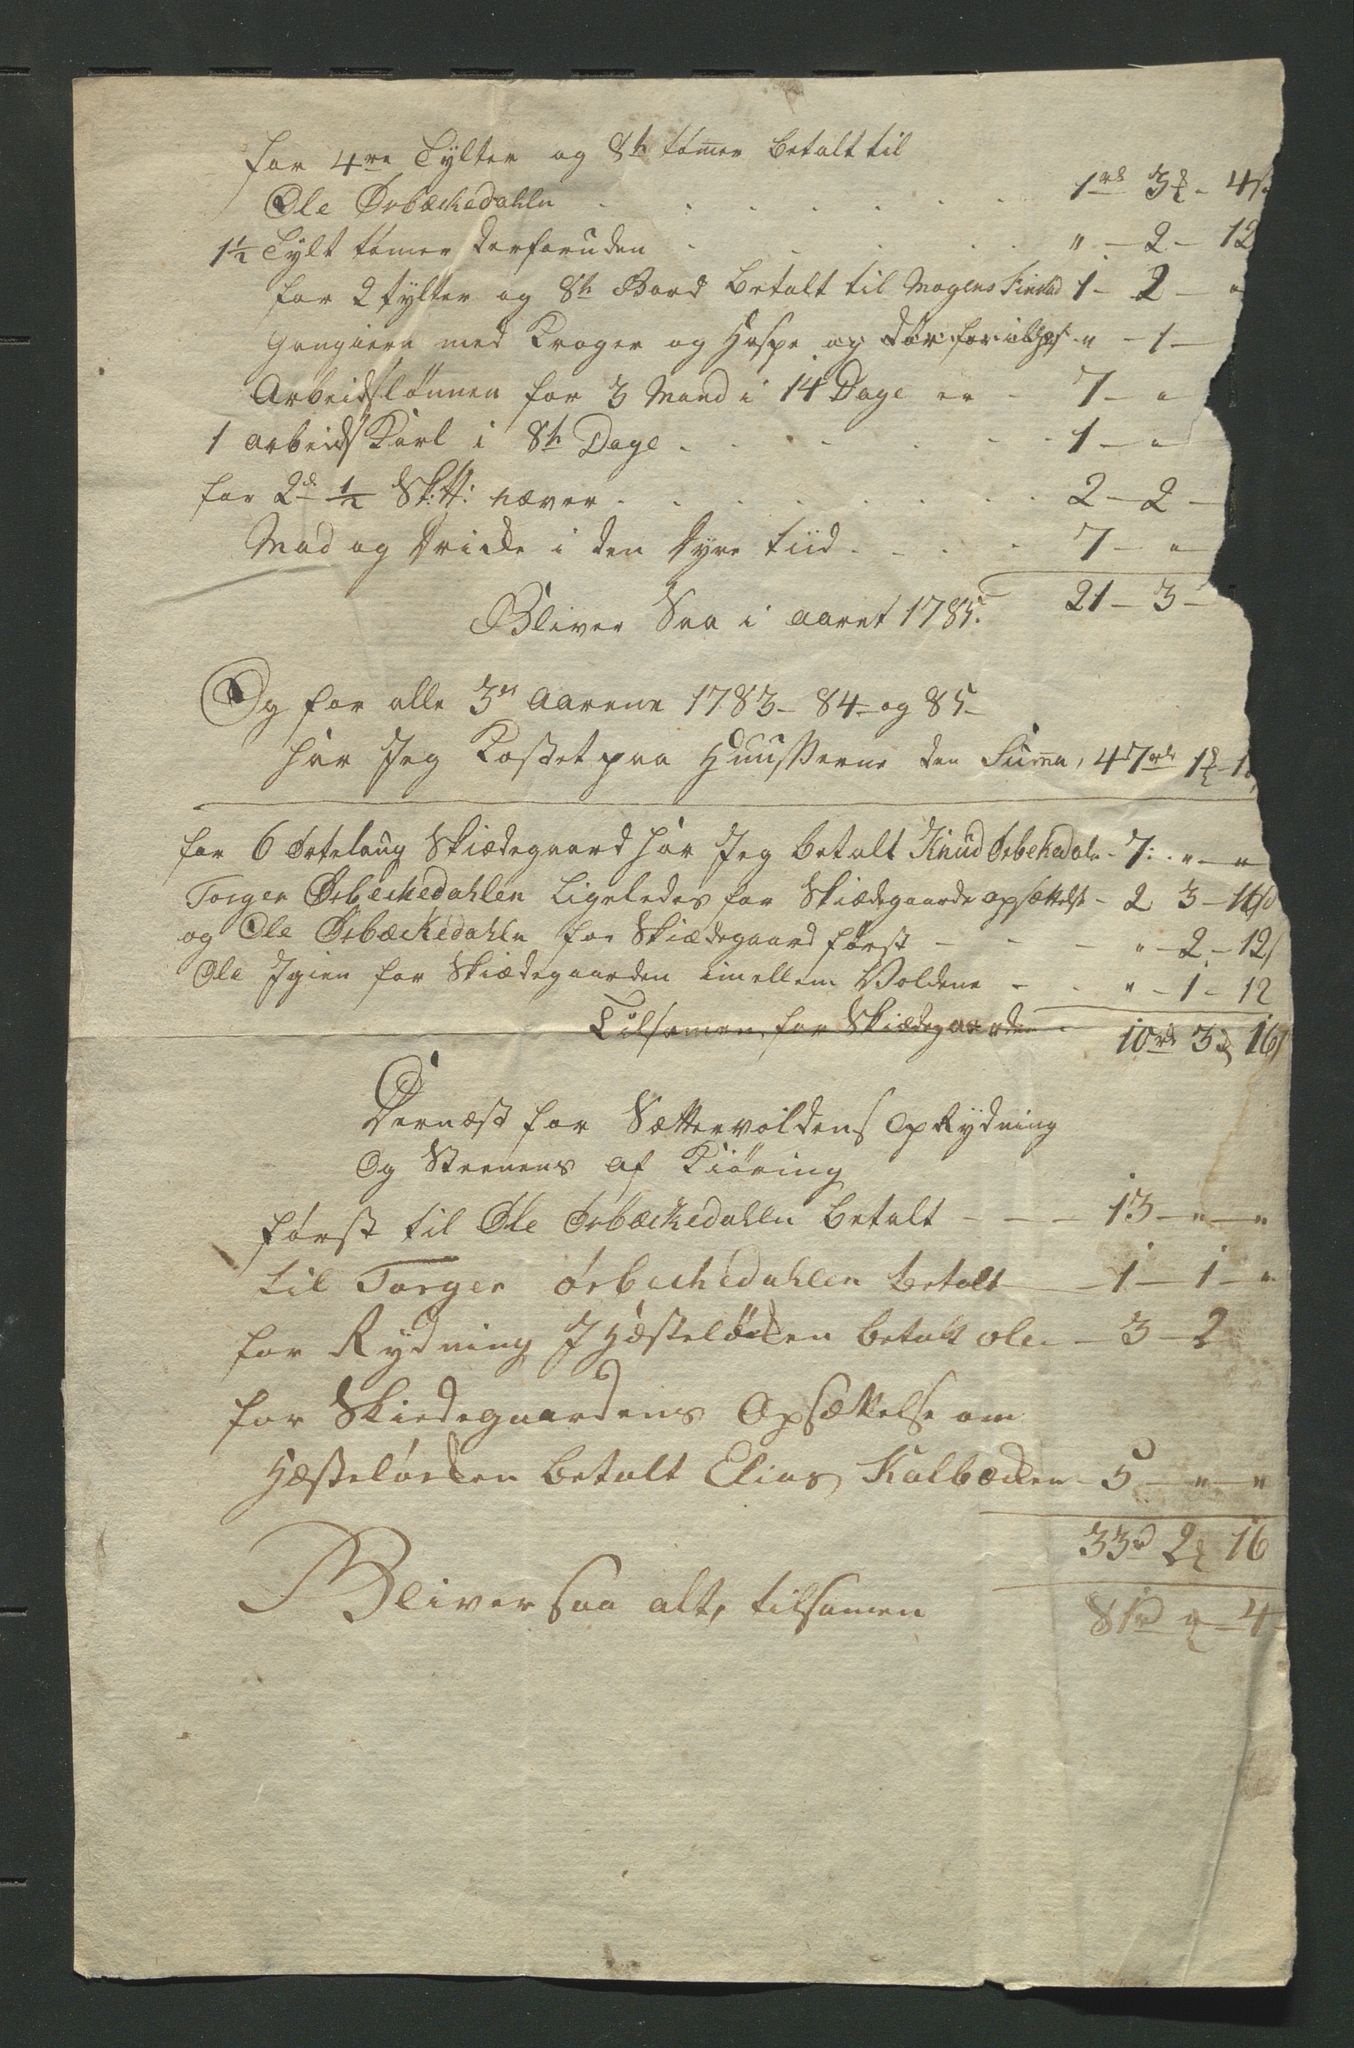 for 4re Tylter og 8te tømer betalt til
Ole Ørbæchedahln . . . . . . . 1rd 3 - 4s
1½ Tylt tømer derforuden . . . . . " - 2 - 12
for 2 tylter og 8te Bord betalt til Mogens 1 - 2 - "
Gangiern med Kroger og Haspe og " - 1 -
Arbeidslønnen for 3 Mand i 14 Dage er - 7 - "
1 arbeids Karl i 8te Dage . . . . 1 - "
for 2d ½ Sk:tt: næver . . . . . . . 2 - 2 -
Mad og Dricke i den dyre tiid . . . . 7 - "
Bliver Saa i aaret 1785. 21 - 3 -
Og for alle 3de Aarene 1783 - 84 - og 85 -
har Jeg Kostet paa Huusserne den Suma, 47rd 1
for 6 Skiædegaard har Jeg betalt Knud Ørbekedaln - 7: " - "
Torger Ørbechedahlen Ligeledes for Skiædegaards opsættelse - 2 3 - 16s
og Ole Ørbæckedahln for Skiædegaard først - - - " - 2 - 12s
Ole Igien for Skiædegaarden imellem Voldene - - " - 1 - 12
Tilsamen for Skiædegaarden - 10rd 3 16s
Dernæst for Sættervoldens opRydning
Og Steenens af Kiøring
først til Ole Ørbæckedahln betalt - - - 13 - " - "
til Torger Ørbechedahlen betalt - 1 - 1 - "
for Rydning I Hæsteløcken betalt ole - 3 - 2
for Skiedegaardens Opsættelse om
Hæsteløcken betalt Elias Kalbæcken - 5 - " - "
33rd 2 16
Bliver saa alt, tilsamen 81rd " - 4 -